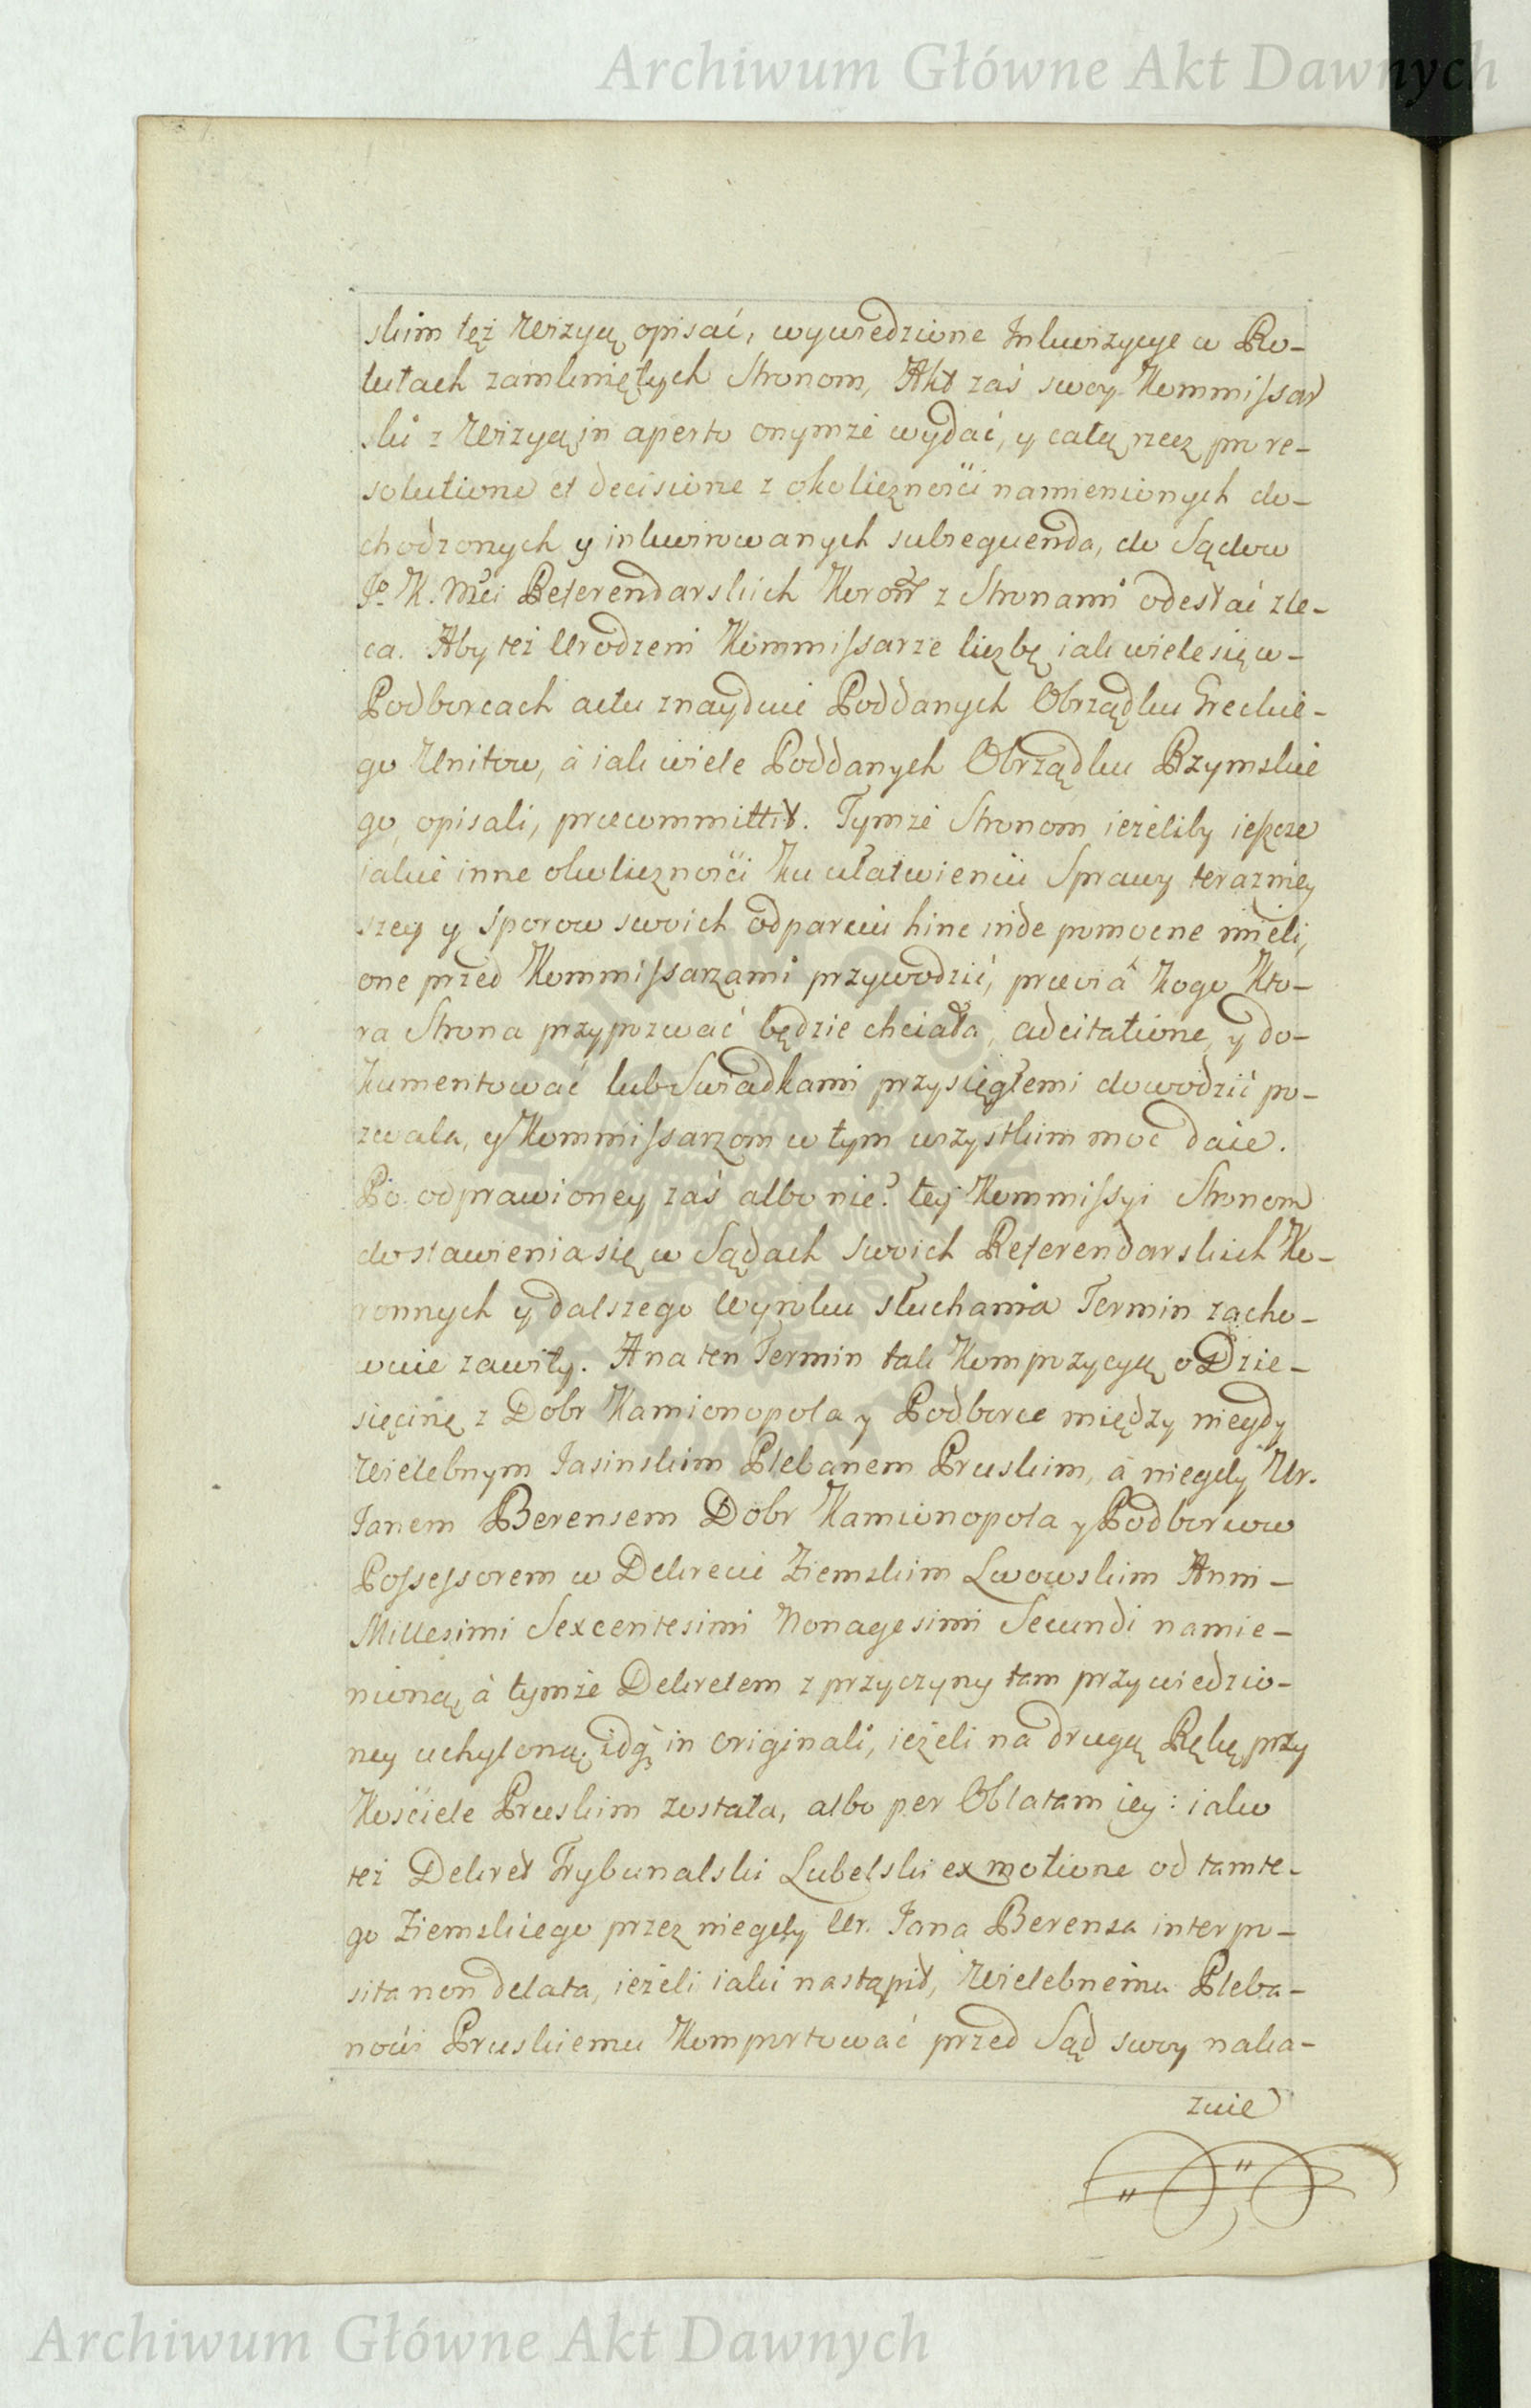 Archiwum Główne Akt Dawnych
skim tęż Wizyą opisać, wywiedzione Inkwizycye w Ro-
tułach zamkniętych Stronom, Akt zaś swoy Kommissar
ski z Wizyą in aperto onymże wydać, y całą rzecz pro re-
solutione et decisione z okoliczności namienionych do-
chodzonych y inkwirowanych subsequenda, do Sądow
Jo K. Mci Referendarskich Koron z Stronami odesłać zle-
ca. Aby też Urodzeni Kommissarze liczbę iak wiele się w-
Podborcach actu znayduie Poddanych Obrządku Greckie-
go Unitow, à iak wiele Poddanych Obrządku Rzymskie
go, opisali, præcommittit. Tymże Stronom ieżeliby ieszcze
iakie inne okoliczności ku ułatwieniu Sprawy teraźniey
szey y sporow swoich odparciu hinc inde pomocne mieli,
one przed Kommissarzami przywodzić, præviâ kogo Kto-
ra Strona przypozwać będzie chciała, adcitatione, y do-
kumentować lub Swiadkami przysięgłemi dowodzić po-
zwala, y Kommissarzom w tym wszystkim moc daie.
Po odprawioney zaś albo nie? tey Kommissyi Stronom
do stawienia się w Sądach swoich Referendarskich Ko-
ronnych y dalszego Wyroku słuchania Termin zacho-
wuie zawity. A na ten Termin tak Kompozycyą o Dzie-
sięcinę z Dobr Kamionopola y Podborce między niegdy
Wielebnym Jasinskim Plebanem Pruskim, à niegdy Ur.
Janem Berensem Dobr Kamionopola y Podborcow
Possessorem w Dekrecie Ziemskim Lwowskim Anni-
Millesimi Sexcentesimi Nonagesimi Secundi namie-
nioną, à tymże Dekretem z przyczyny tam przywiedzio-
ney uchyloną, idq in originali, ieżeli na drugą Rękę przy
Kościele Pruskim została, albo per Oblatam iey: iako
też Dekret Trybunalski Lubelski ex motione od tamte-
go Ziemskiego przez niegdy Ur. Jana Berensa interpo-
sita non delata, ieżeli iaki nastąpił, Wielebnemu Pleba-
nowi Pruskiemu Komportować przed Sąd swoy naka-
zuie
Archiwum Główne Akt Dawnych